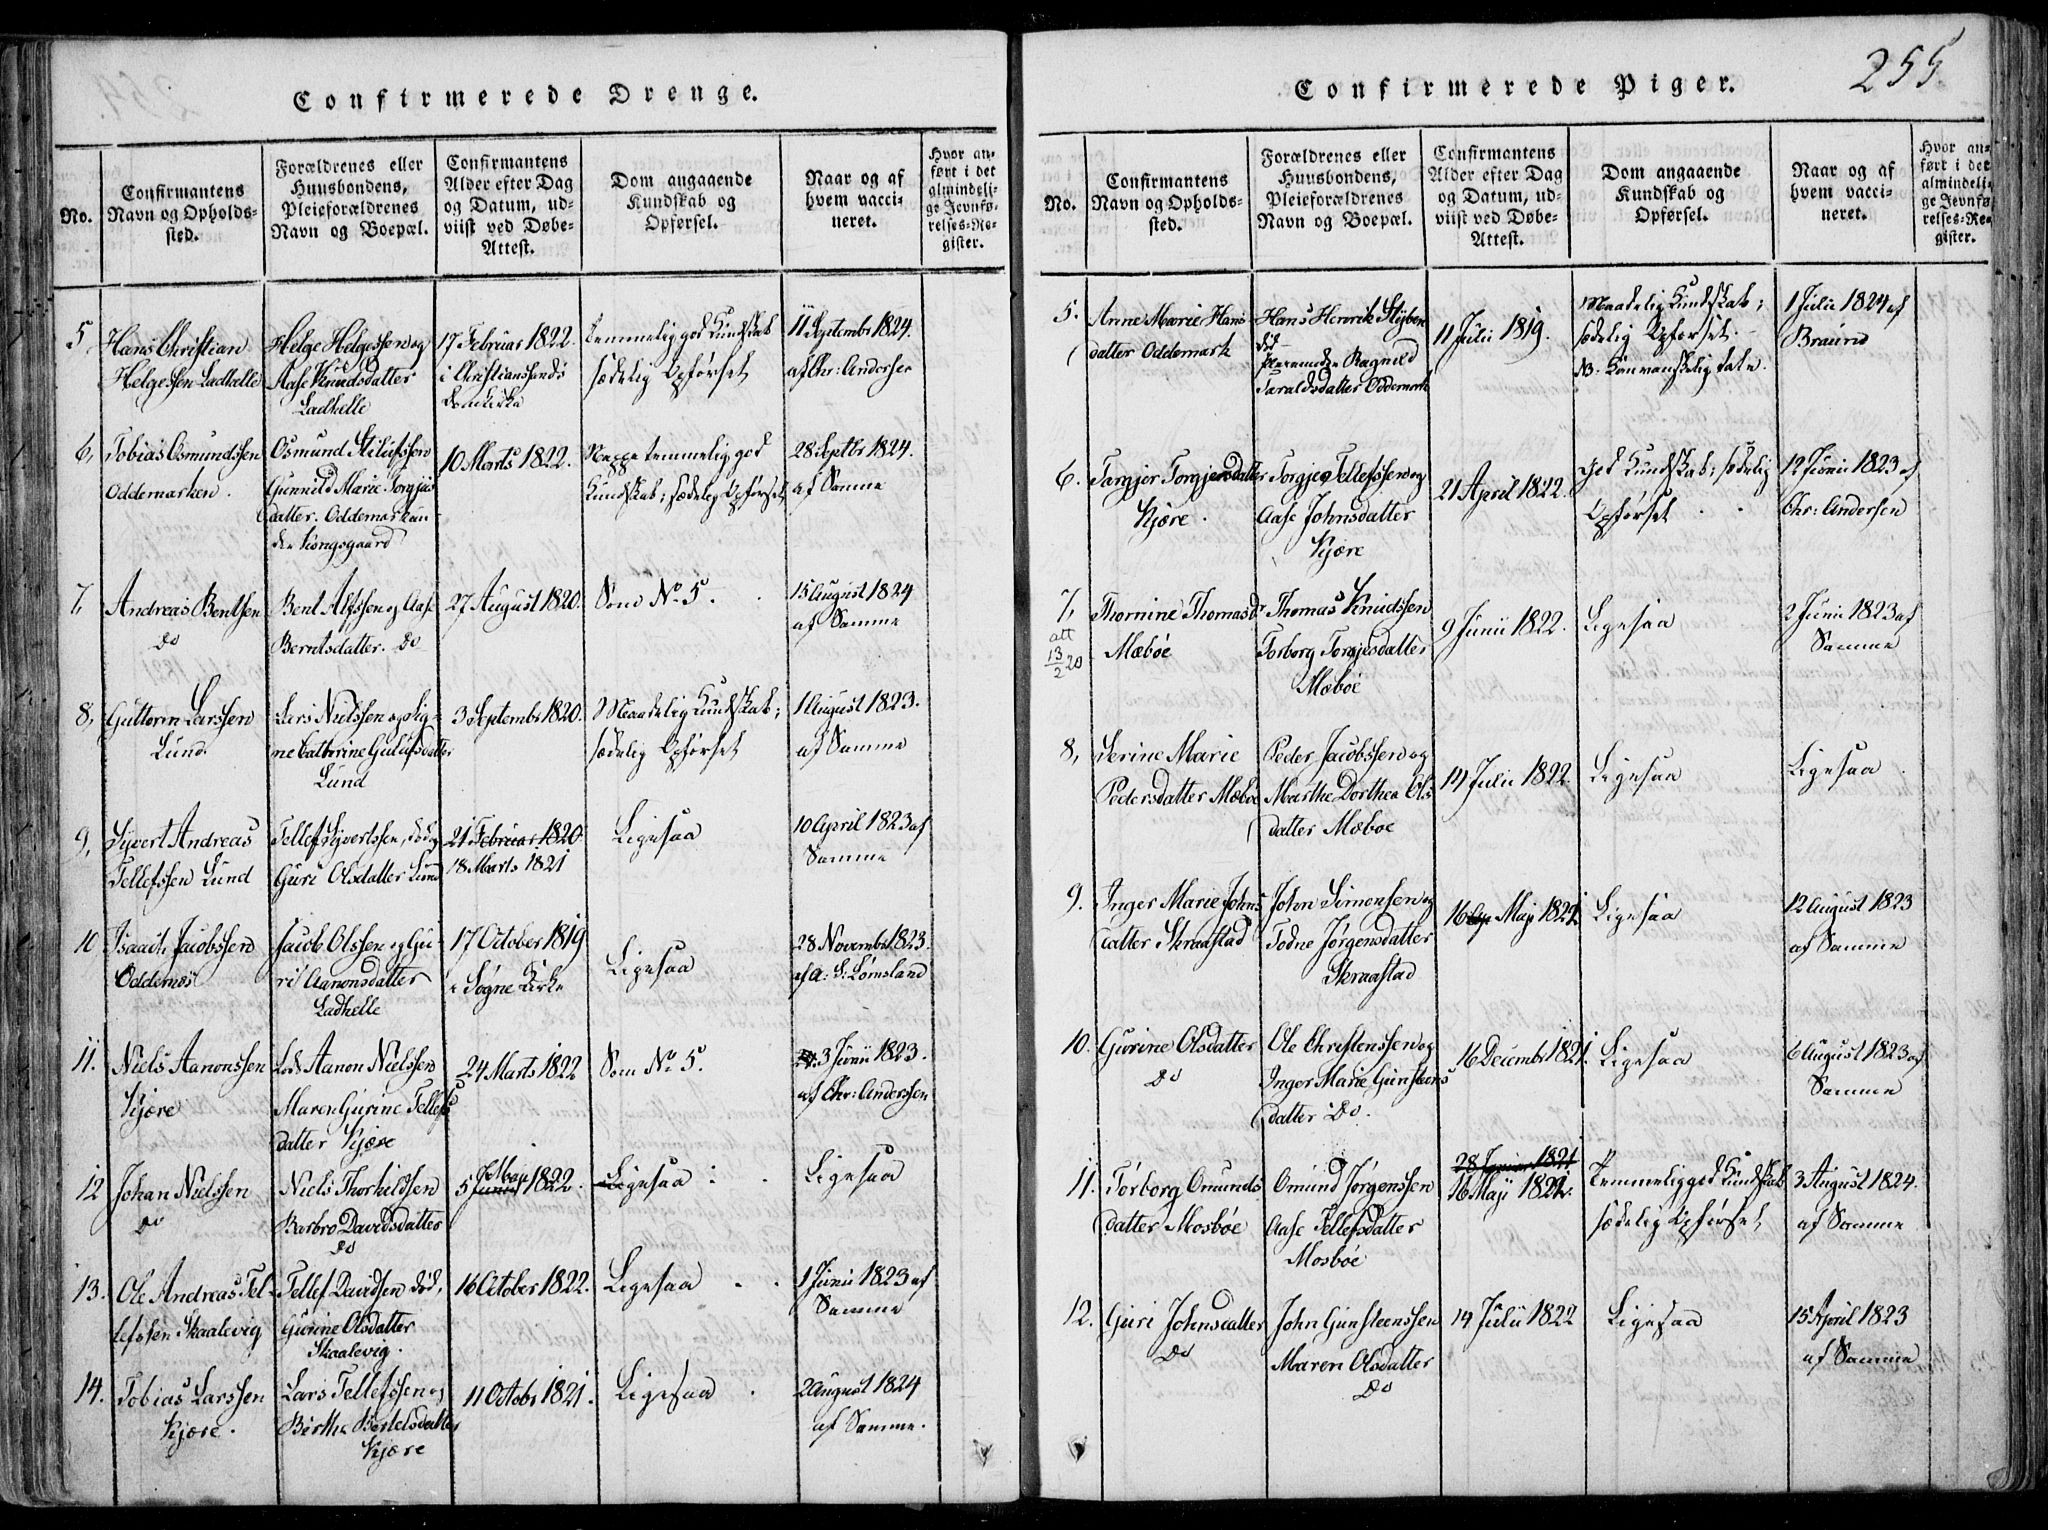 255
Confirmerede Drenge.
No.
Confirmantens
Navn og Opholds-
sted.
Forældrenes eller
Huusbondens,
Pleieforældrenes
Navn og Boepæl.
Confirmantens
Alder efter Dag
og Datum, ud-
viist ved Døbe-
Attest.
Dom angaaende
Kundskab og
Opførsel.
Naar og af
hvem vacci-
neret.
Hvor an-
ført i det
almindeli-
ge Jevnfø-
relses-Re-
gister.
5
Hans Christian
Helgessen Ladhelle
Helge Helgessen og
Aase Knudsdatter
Ladhelle
17 Februar 1822.
i Christianssands
Domkirke
Temmelig god Kundskab
sædelig Opførsel
11 Septembr 1824.
af Chr: Andersen
6,
Tobias Osmundssen
Oddemarken.
Osmund
Gunnild Marie Torgjus
datter. Oddemarken un-
der Kongsgaard
10 Marts 1822.
temmelig god
Kundskab; sædelig Opførsel
28 Septbr 1824.
af Samme
7,
Andreas Bentsen
Do
Bent Alfssen og Aase
Berntsdatter. Do
27 August 1820.
Som No 5.
15 August 1824
af Samme
8,
Guttorm Larssen
Lund.
Lars Nielssen og Sig-
ne Cathrine Gulufsdatter
Lund
3 Septembr 1820.
Maadelig Kundskab;
sædelig Opførsel
1 August 1823.
af Samme
9,
Syvert Andreas
Tellefssen Lund
Tellef Syvertssen, død og
Guri Olsdatter Lund
21 Februar 1820
18 Marts 1821
Ligesaa
10 April 1823 af
Samme
10
Isaach Jacobssen
Oddernæs
Jacob Olssen og Gu-
ri Aanonsdatter
Ladhelle
17 October 1819
i Søgne Kirke
Ligesaa
28 Novembr 1823.
af A: S: Lømsland
11.
Niels Aanonssen
Kjære
Lods Aanon Nielssen
Maren Gurine Tellefs
datter Kjære
24 Marts 1822
Som No 5.
3 Junii 1823.
af Chr: Anderssen
12
Johan Nielssen
Do
Niels Thorkildsen
Barbro Davidsdatter
Do
5 Junii 1822.
Ligesaa
Ligesaa
13.
Ole Andreas Tel-
lefssen Skaalevig
Tellef Davidsen død,
Gurine Olsdatter
Skaalevig.
16 October 1822.
Ligesaa
1 Junii 1823 af
Samme
14.
Tobias Larssen
Kjære.
Lars Tellefssen og
Birthe Bertelsdatter
Kjære
11 Octobr 1821.
Ligesaa
2 August 1824
af Samme.
Confirmerede Piger.
No.
Confirmantens
Navn og Opholds-
sted.
Forældrenes eller
Huusbondens,
Pleieforældrenes
Navn og Boepæl.
Confirmantens
Alder efter Dag
og Datum, ud-
viist ved Døbe-
Attest.
Dom angaaende
Kundskab og
Opførsel.
Naar og af
hvem vacci-
neret.
Hvor an-
ført i det
almindeli-
ge Jevnfø-
relses-Re-
gister.
5.
Anne Marie Hans
datter Oddemark
Hans Henrik Styben
død
Ragnild
Taraldsdatter Oddemark
11 Julii 1819.
Maadelig Kundskab;
sædelig Opførsel.
1 Julii 1824 af
Braurd
6.
Torgjer Torgjersdatter
Kjære.
Torgjer Tellefssen og
Aase Johnsdatter
Kjære
21 April 1822.
god Kundskab; sædelig
Opførsel
12 Junii 1823 af
Chr: Andersen
7,
att
13/2 20
Thomine Thomasdr
Mæbøe
Thomas Knudssen
Torborg Torgjesdatter
Mæbøe
9 Junii 1822.
Ligesaa
2 Junii 1823 af
Samme
8,
Serine Marie
Pedersdatter Mæbøe
Peder Jacobssen og
Marthe Dorthea Ols
datter Mæbøe
14 Julii 1822.
Ligesaa
Ligesaa
9.
Inger Marie Johns
datter Skraastad
John Simonsen og
Todne Jørgensdatter
Skraastad
16 Maji 1822
Ligesaa
12 August 1823
af Samme
10.
Gurine Olsdatter
Do
Ole Christenssen og
Inger Marie Gunsteens
datter Do.
16 Decembr 1821.
Ligesaa
6 August 1823 af
Samme
11.
Torborg Omunds
datter Mosbøe
Omund Jørgenssen
Aase Tellefsdatter
Mosbøe
28 Januar 1821
16 Maji 1822.
Temmelig god Kundskab
sædelig Opførsel
3 August 1824.
af Samme
12.
Guri Johnsdatter
Do
John Gunsteenssen
Maren Olsdatter
Do
14 Julii 1822
Ligesaa
15 April 1823
af Samme